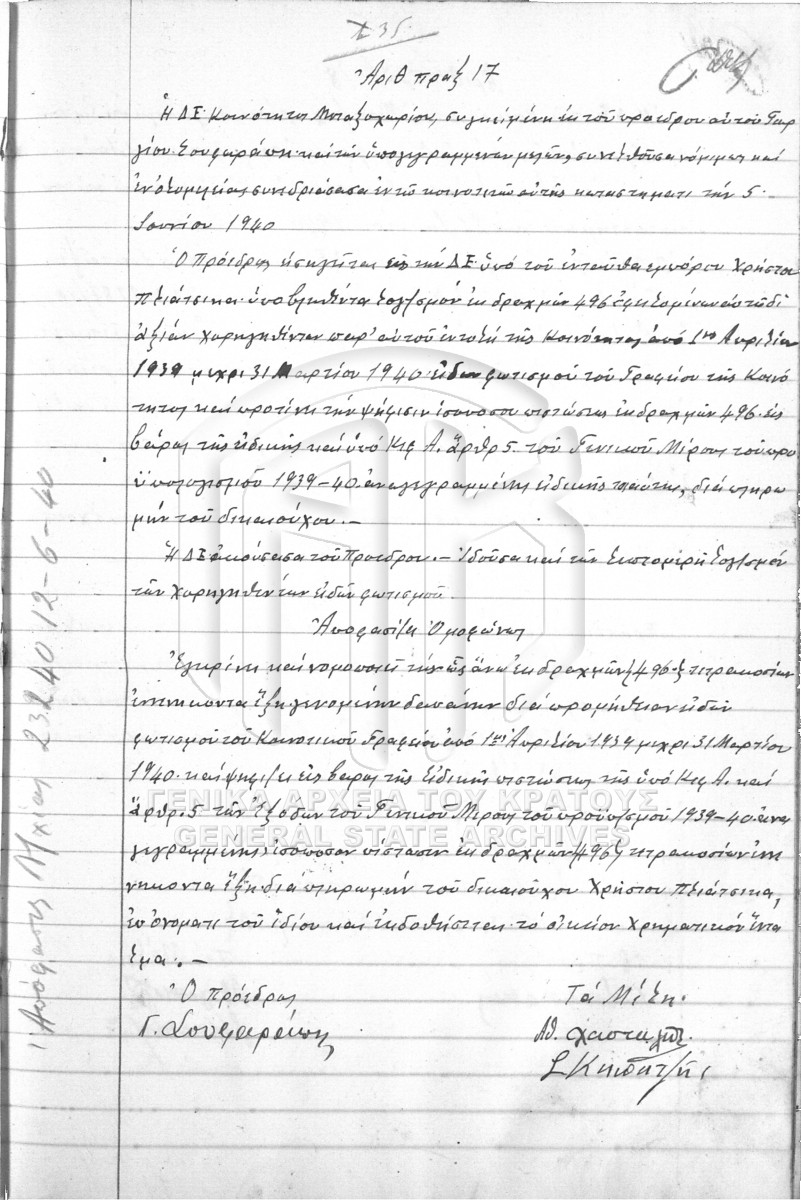 35.
Ἀριθ πραξ 17
Ἡ ΔΕ Κοινότητος Μεταξοχωρίου, συγκειμένη ἐκ τοῦ προέδρου αὐτοῦ Γεωρ
γίου Σουφαράπη καί τῶν ὑπογεγραμμένων μελῶν, συνελθοῦσα νόμιμως καί
συνεδριάσασα ἐν τῷ κοινοτικῷ αὐτῆς καταστήματι τήν 5
Ἰουνίου 1940
Ὁ Πρόεδρος εἰσηγεῖται εἰς τήν ΔΕ ὑπό τοῦ ἐνταῦθα εμπόρου Χρήστου
Πλιάτσικα ὑποβληθέντα λογ/σμόν ἐκ δραχμῶν 496
ἀξίαν χορηγηθέντων παρ' αὐτοῦ τῆς Κοινότητος ἀπό 1ης Ἀπριλίου
1939 μεχρι 31 Μαρτίου 1940 εἰδῶν φωτισμοῦ τοῦ Γραφείου τῆς Κοινό
τητος καί προτίνει τήν ψήφισιν ἰσοπόσου πιστώσεως ἐκ δραχμῶν 496 εἰς
βάρος τῆς εἰδικῆς καί ὑπό Κεφ Α. ἄρθρ 5. τοῦ Γενικοῦ Μέρους τοῦ προ
ϋπολογισμοῦ 1939-40 ἀναγεγραμμένης εἰδικῆς τοιαύτης, διά πληρω
μήν τοῦ δικαιούχου.-
Ἡ ΔΕ ἀκούσασα τοῦ Προέδρου.- Ἰδοῦσα καί τόν λεπτομερῆ λογ/σμόν
τῶν χορηγηθέντων εἰδῶν φωτισμοῦ.
Ἀποφασίζει Ὁμοφώνως
Ἐγκρίνει καί νομιμοποιεῖ τήν ὡς ἄνω ἐκ δραχμῶν (496) τετρακοσίων
ἐνενηκοντα ἕξη γενομένην δαπάνην διά προμήθειαν εἰδῶν
φωτισμοῦ τοῦ Κοινοτικοῦ Γραφείου ἀπό 1ης Ἀπριλίου 1939 μεχρι 31 Μαρτίου
1940 καί ψηφίζει εἰς βάρος τῆς εἰδικῆς πιστώσεως τῆς ὑπό Κεφ Α. καί
ἄρθρ. 5 τῶν Ἐξόδων τοῦ Γενικοῦ Μέρους τοῦ προϋπ/σμοῦ 1939-40 ἀνα
γεγραμμένης ἰσόποσον πίστωσιν ἐκ δραχμῶν (496) τετρακοσίων ἐνε
νηκοντα ἕξη διά πληρωμήν τοῦ δικαιούχου Χρήστου Πλιάτσικα,
ἐπ' ὀνόματι τοῦ ἰδίου καί ἐκδοθήσεται τό οἰκεῖον χρηματικόν ἔντα
λμα.-
Ὁ πρόεδρος
Τά Μέλη.
Γ. Σουφαράπης
Αθ.
Ἀπόφασις Ν/χίας 23240 12-6-40
ΓΕΝΙΚΑ ΑΡΧΕΙΑ ΤΟΥ ΚΡΑΤΟΥΣ
GENERAL STATE ARCHIVES